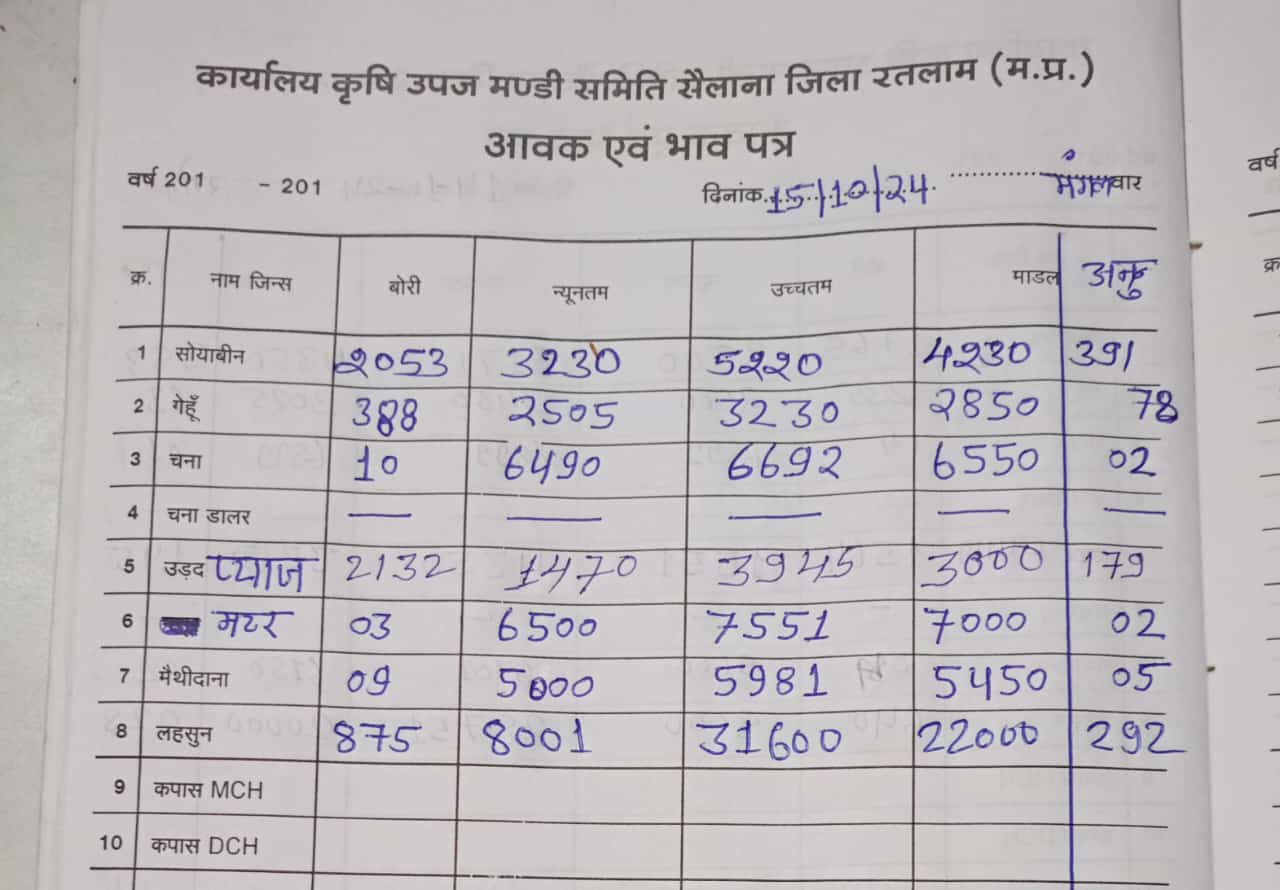 कार्यालय कृषि उपज मण्डी समिति सैलाना जिला रतलाम (म.प्र.)
आवक एवं भाव पत्र
वर्ष 201 - 201 दिनांक 15/10/24 मंगलवार
क्र. नाम जिन्स बोरी न्यूनतम उच्चतम माडल
1 सोयाबीन 2053 3230 5220 4230 391
2 गेहूँ 388 2505 3230 2850 78
3 चना 10 6490 6692 6550 02
4 चना डालर — — — — —
5 उड़द प्याज 2132 1470 3945 3000 179
6 मटर 03 6500 7551 7000 02
7 मैथीदाना 09 5000 5981 5450 05
8 लहसुन 875 8001 31600 22000 292
9 कपास MCH
10 कपास DCH
वर्ष
क्र